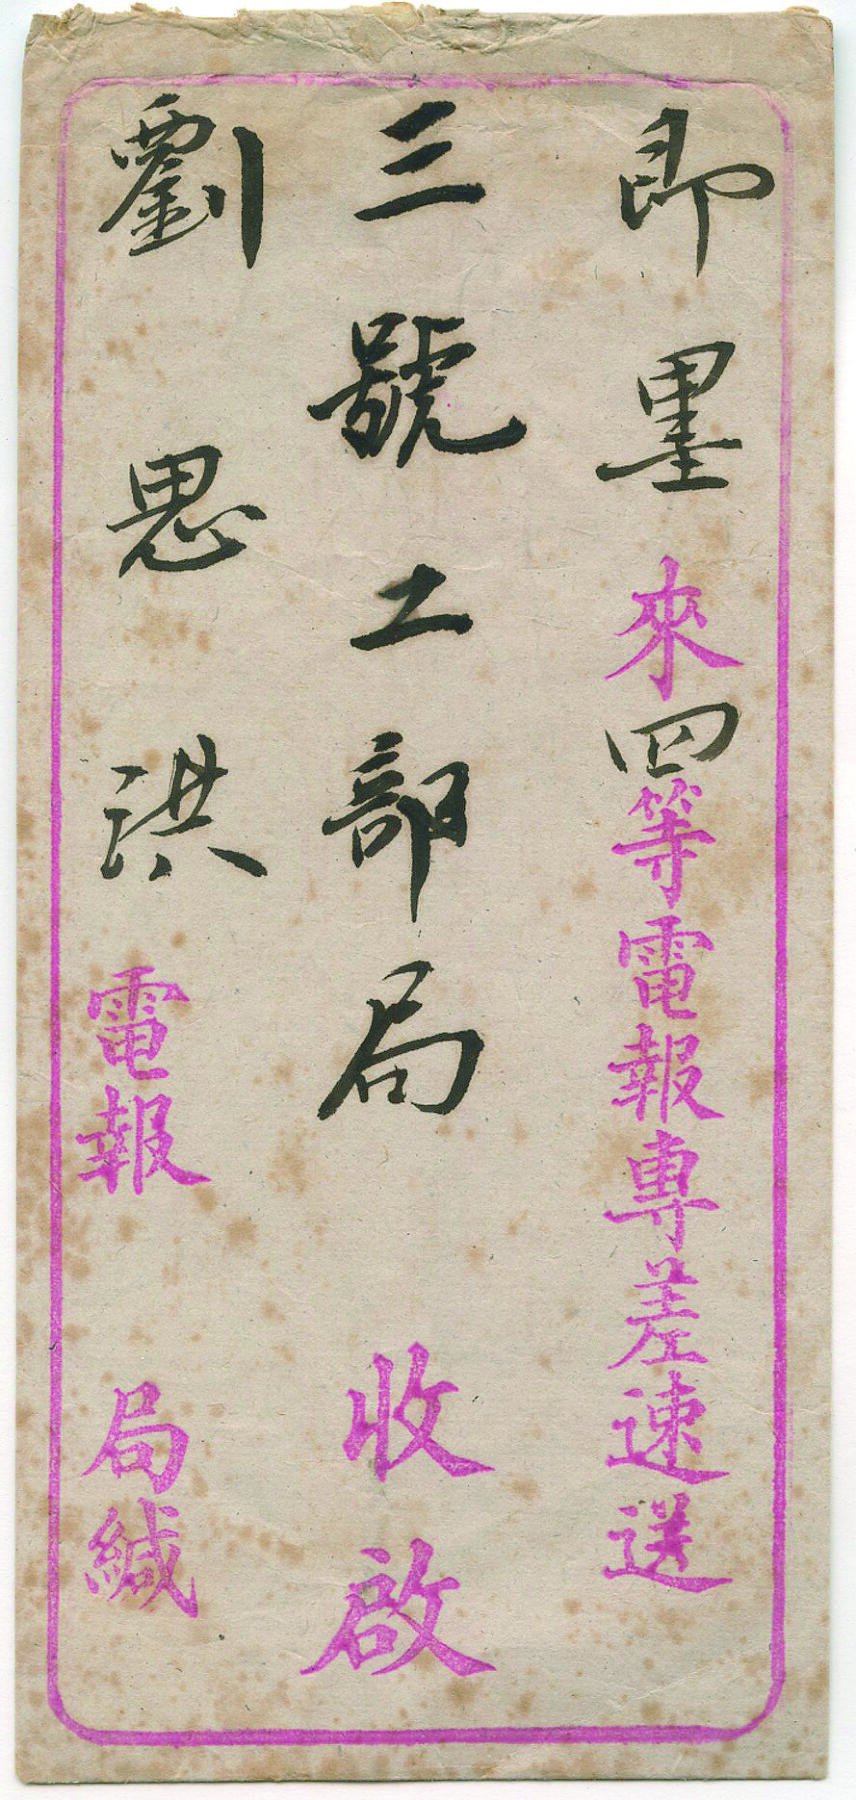 即墨來四等電報專差速送
三號工部局 收啟
劉思洪 電報 局緘